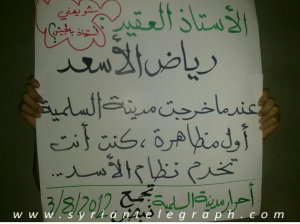 الأستاذ العقيد
رياض الأسعد
عندما خرجت مدينة السلمية
أول مظاهرة ، كنت أنت
تخدم نظام الأسد ..
أحرار مدينة السلمية
تجمع
3/8/2012
www.syriantelegraph.com